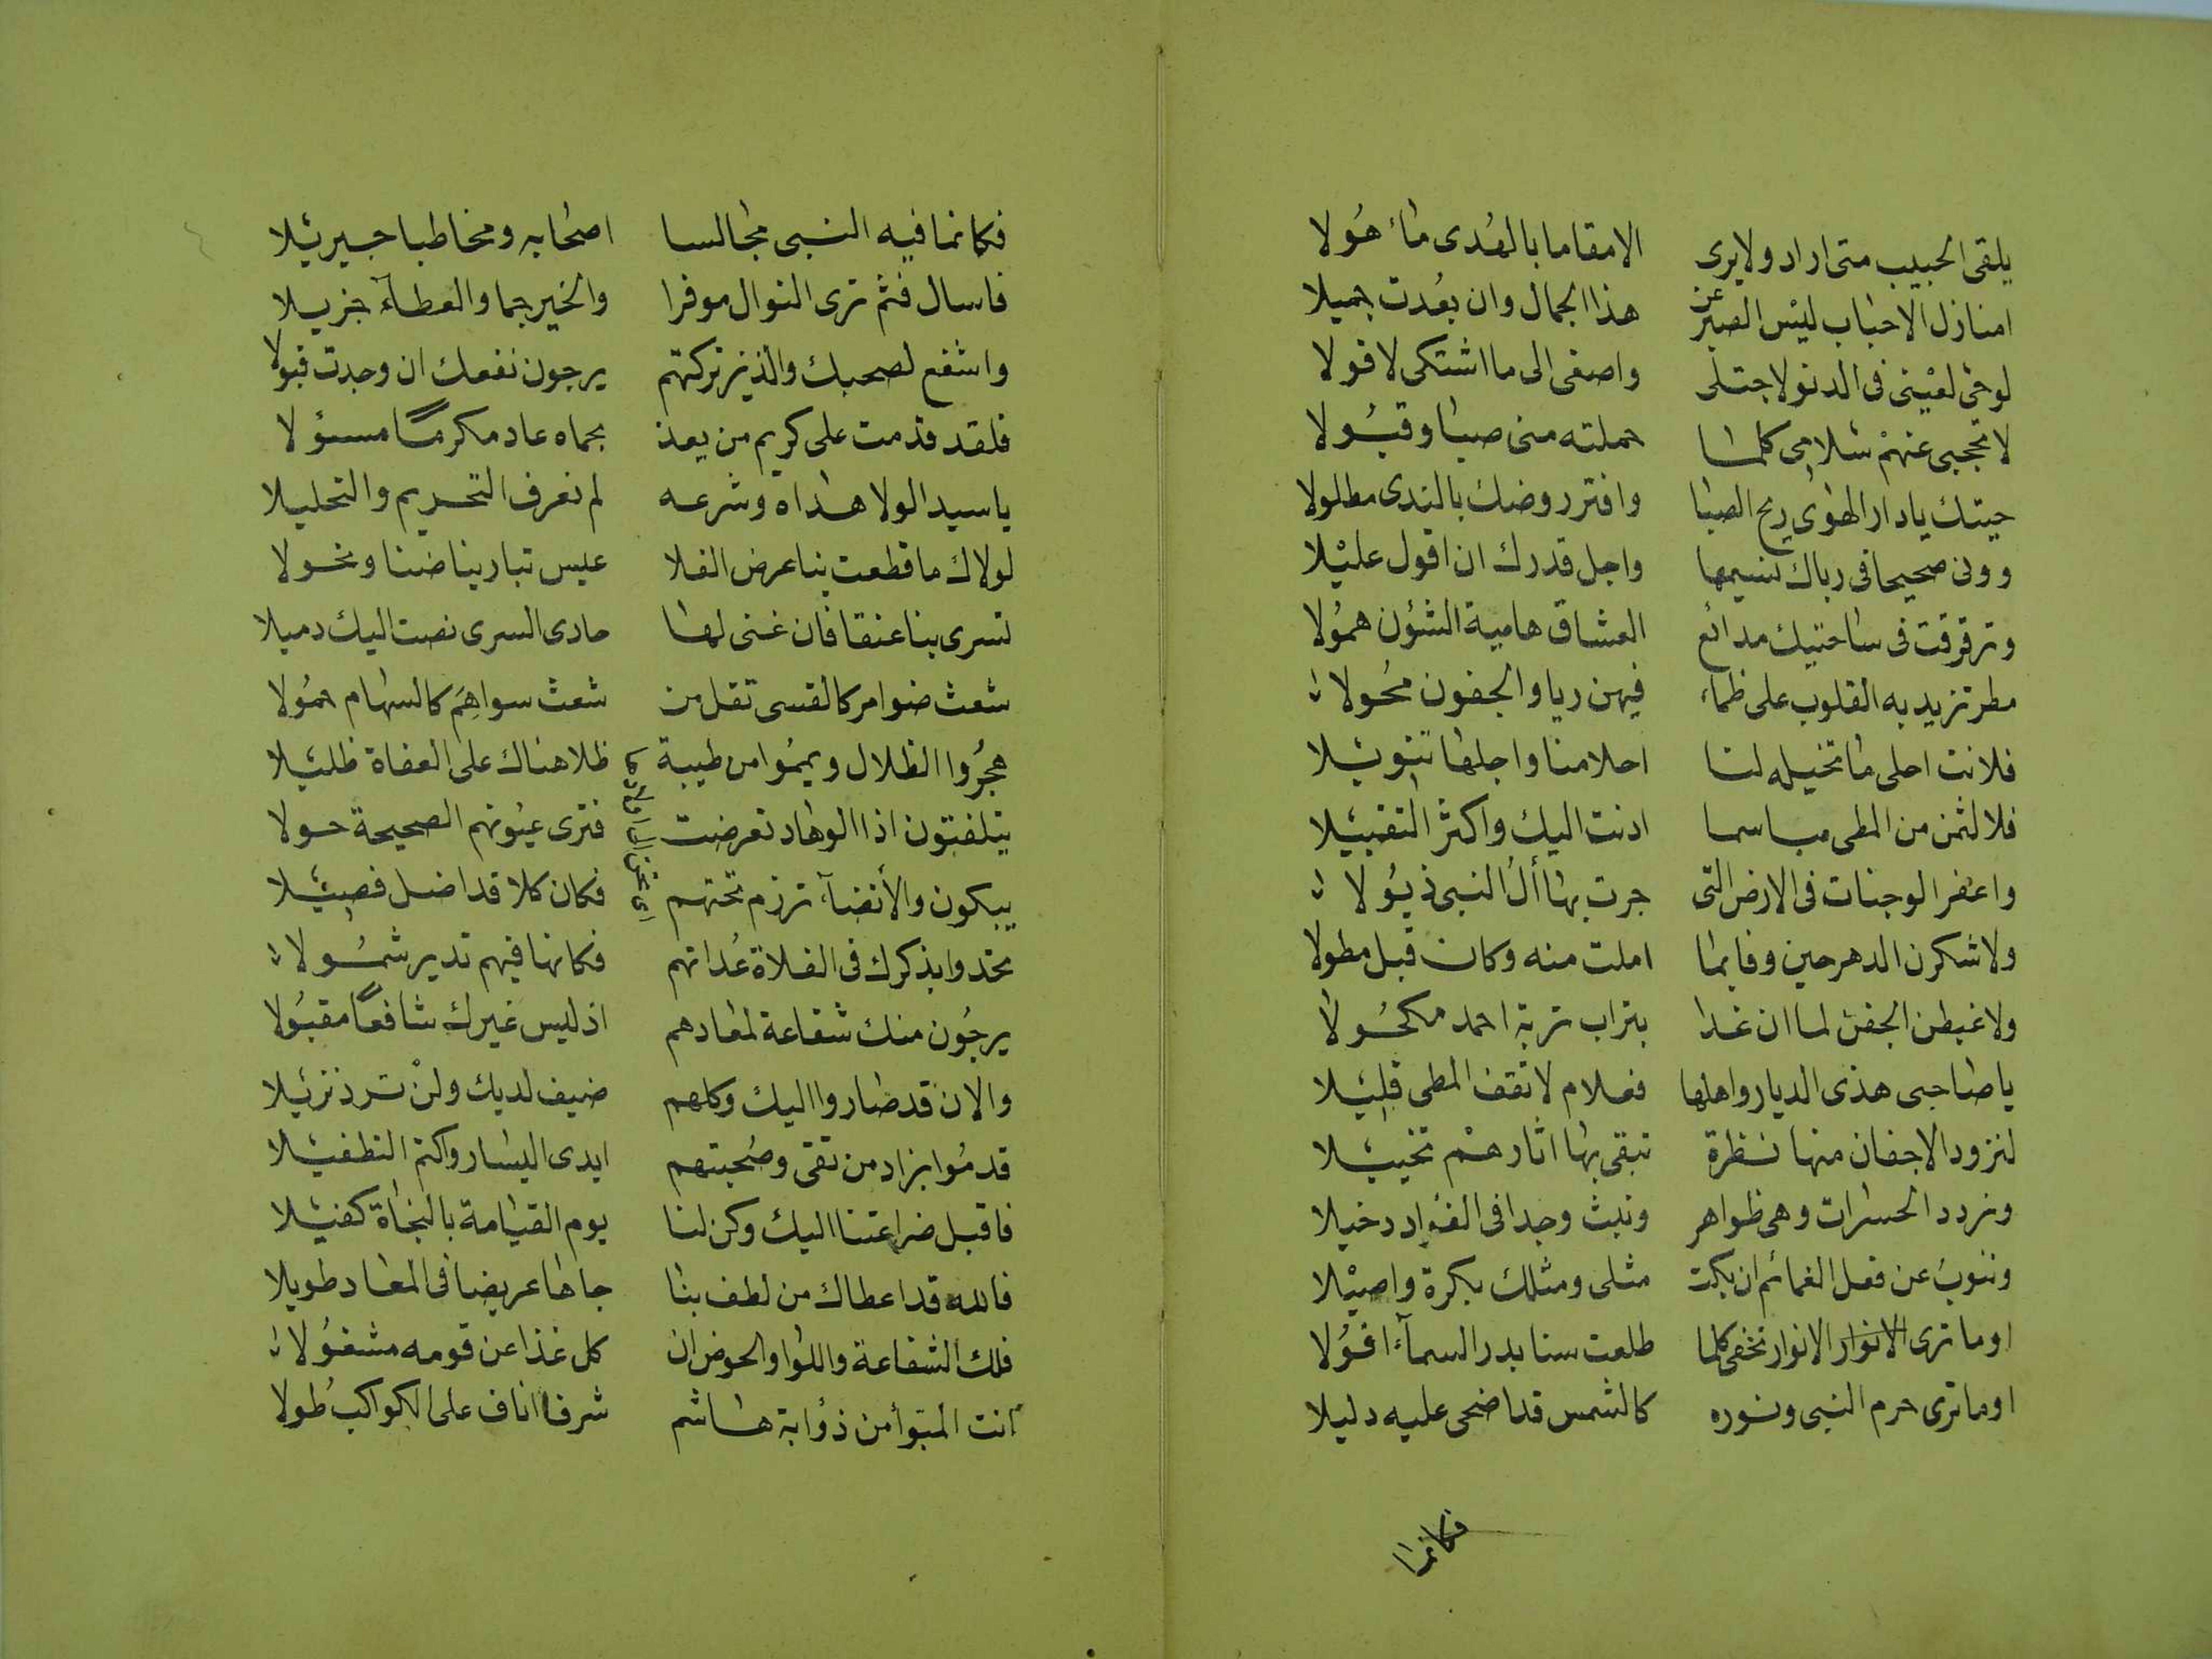 يلقى الحبيب متى اراد ولا يرى الا مقاما بالهدى ماهولا
امنازل الاحباب ليس الصبر عن هذا الجمال وان بعدت جميلا
لو حى لعينى فى الدنو لاجتلى واصغى الى ما اشتكى لاقولا
لا تحجبى عنهم سلامى كلما حملته منى صبا وقبولا
حيتك يا دار الهوى ريح الصبا وافتر روضك بالندى مطلولا
وونى صحيحا فى رباك نسيمها واجل قدرك ان اقول عليلا
وترقرقت فى ساحتيك مدامع العشاق هامية الشؤن همولا
مطر تزيد به القلوب على ظماء فيهن ريا والجفون محولا
فلانت احلى ما تخيله لنا احلامنا واجلها تنويلا
فلالثمن من المطى مباسما ادنت اليك واكثر التقبيلا
واعفر الوجنات فى الارض التى جرت بها أل النبى ذيولا
ولاشكرن الدهر حين وفا بما املت منه وكان قبل مطولا
ولاغبطن الجفن لما ان غدا بتراب تربة احمد مكحولا
يا صاحبى هذى الديار واهلها فعلام لا تقف المطى قليلا
لنزود الاجفان منها نظرة تبقى بها اثارهم تخييلا
ونردد الحسرات وهى ظواهر ونبث وجدا فى الفؤاد دخيلا
وننوب عن فعل الغمائم ان بكت مثلى ومثلك بكرة واصيلا
اوما ترى الانوار الانوار تخفى كلما طلعت سنا بدر السمآء افولا
اوما ترى حرم النبى ونوره كالشمس قد اضحى عليه دليلا
فكانما
فكانما فيه النبى مجالسا اصحابه ومخاطبا جبريلا
فاسال فثم ترى النوال موفرا والخير جما والعطآء جزيلا
واشفع لصحبك والذين تركتهم يرجون نفعك ان وجدت قبولا
فلقد قدمت على كريم من يعذ بحماه عاد مكرمًا مسؤلا
يا سيدا لولا هداه وشرعه لم نعرف التحريم والتحليلا
لولاك ما قطعت بنا عرض الفلا عيس تبارينا ضنا ونحولا
تسرى بنا عنقا فان غنى لها حادى السرى نصت اليك ذميلا
شعث ضوامر كالقسى تقل من شعث سواهم كالسهام حمولا
هجروا الظلال ويمموا من طيبة ظلا هناك على العفاة ظليلا
يتلفتون اذا الوهاد تعرضت فترى عيونهم الصحيحة حولا
يبكون والأنضآء ترزم تحتهم فكان كلا قد اضل فصيلا
تحدوا بذكرك فى الفلاة حداتهم فكانها فيهم تدير شمولا
يرجون منك شفاعة لمعادهم اذ ليس غيرك شافعًا مقبولا
والان قد صاروا اليك وكلهم ضيف لديك ولن ترد نزيلا
قدموا بزاد من تقى وصحبتهم ايدى اليسار واكتم التطفيلا
فاقبل ضراعتنا اليك وكن لنا يوم القيامة بالنجاة كفيلا
فالله قد اعطاك من لطف بنا جاها عريضا فى المعاد طويلا
فلك الشفاعة واللوا والحوض ان كل غدا عن قومه مشغولا
أنت المبوأ من ذؤابة هاشم شرفا اناف على الكواكب طولا